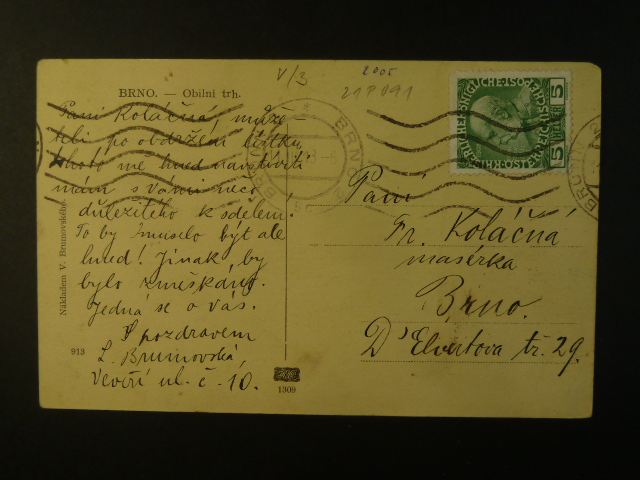 V/3
2005
21P091
BRNO. — Obilní trh.
Paní Koláčná, může-
teli po obdržení lístku
tohoto mě hned navštíviti
mám s Vámi něco
důležitého k sdělení.
To by muselo být ale
hned! Jinak by
bylo zmeškáno.
Jedná se o vás.
S pozdravem
L. Brunovská,
Veveří ul. č. 10.
Nákladem V. Brunovského.
913
1309
BRNO
BRÜNN
5 HELLER 5
Paní
Fr. Koláčná
masérka
Brno.
D'Elvertova tř. 29.